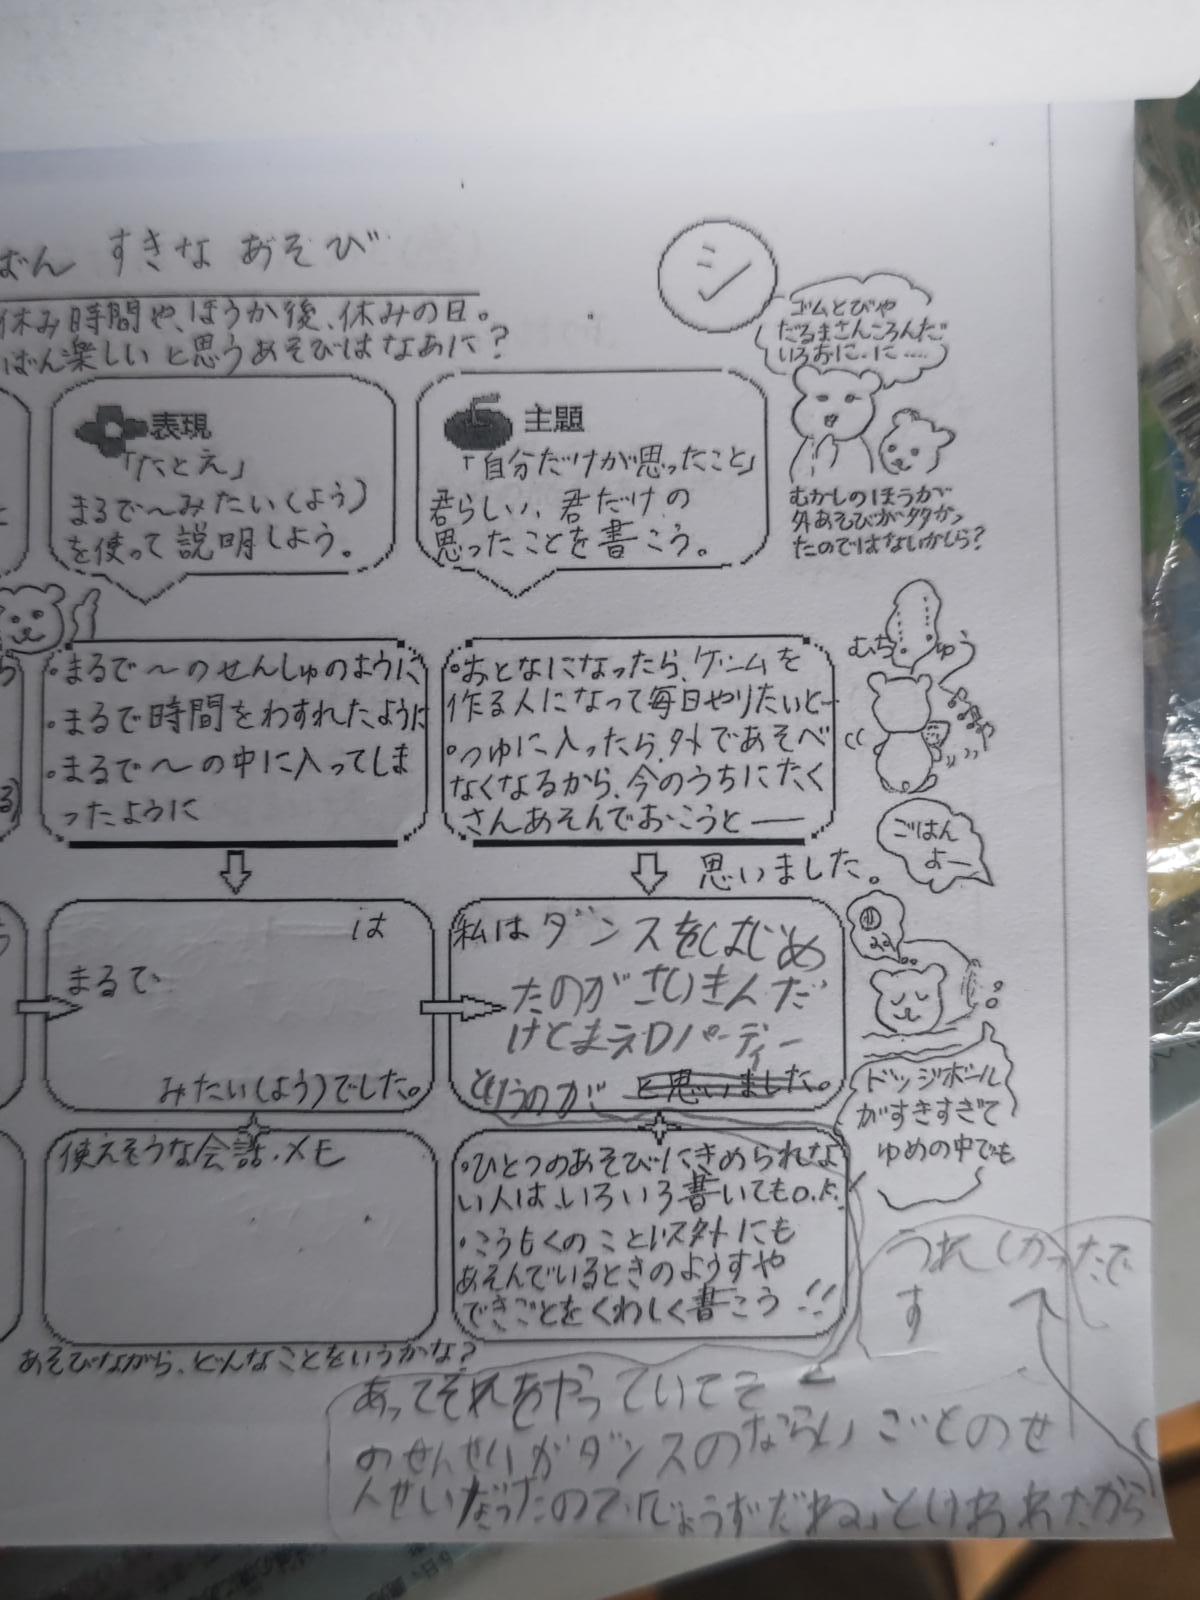 ばん すきな あそび
休み時間や、ほうか後、休みの日。
ばん楽しいと思うあそびはなあに？
シ
ゴムとびや
だるまさんころんだ
いろおに・に・・・・
むかしのほうが
外あそびが多かっ
たのではないかしら？
表現
「たとえ」
まるで〜みたい(よう)
を使って説明しよう。
主題
「自分だけが思ったこと」
君らしい、君だけの
思ったことを書こう。
・まるで〜のせんしゅのように
・まるで時間をわすれたように
・まるで〜の中に入ってしま
ったように
・おとなになったら、ゲームを
作る人になって毎日やりたいと―
・つゆに入ったら、外であそべ
なくなるから、今のうちにたく
さんあそんでおこうと――
むちゅう
ごはん
よー
思いました。
は
まるで
みたい(よう)でした。
私はダンスをはじめ
たのがさいきんだ
けどまえDパーティー
というのが と思いました。
ドッジボール
がすきすぎて
ゆめの中でも
使えそうな会話・メモ
・ひとつのあそびにきめられな
い人は、いろいろ書いてもO.K.
・こうもくのこと以外にも
あそんでいるときのようすや
できごとをくわしく書こう!!
あそびながら、どんなことをいうかな？
あってそれをやっていてそ
のせんせいがダンスのならいごとのせ
んせいだったので「じょうずだね」といわれたから
うれしかったで
す